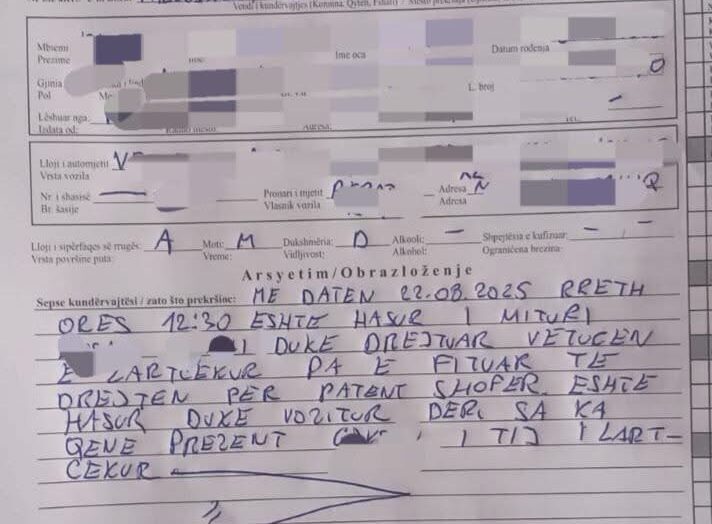 Vendi i kundërvajtjes (Komuna, Qyteti, Fshati) / Mesto prekršaja
Mbiemri
Prezime
Ime oca
Datum rođenja
Gjinia
Pol
L. broj
Lëshuar nga:
Izdata od:
Adresa:
Lloji i automjetit V
Vrsta vozila
Nr. i shasisë
Br. šasije
Pronari i mjetit
Vlasnik vozila
Adresa N
Adresa
Lloji i sipërfaqes së rrugës: A Moti: M Dukshmëria: D Alkooli: – Shpejtësia e kufizuar: –
Vrsta površine puta: Vreme: Vidljivost: Alkohol: Ograničena brezina:
Arsyetim/Obrazloženje
Sepse kundërvajtësi / zato što prekršinc: ME DATEN 22.08.2025 RRETH
ORES 12:30 ESHTE HASUR I MITURI
I DUKE DREJTUAR VETUREN
E LARTCEKUR PA E FITUAR TE
DREJTEN PER PATENT SHOFER. ESHTE
HASUR DUKE VOZITUR DERI SA KA
QENE PREZENT I TIJ I LART-
CEKUR